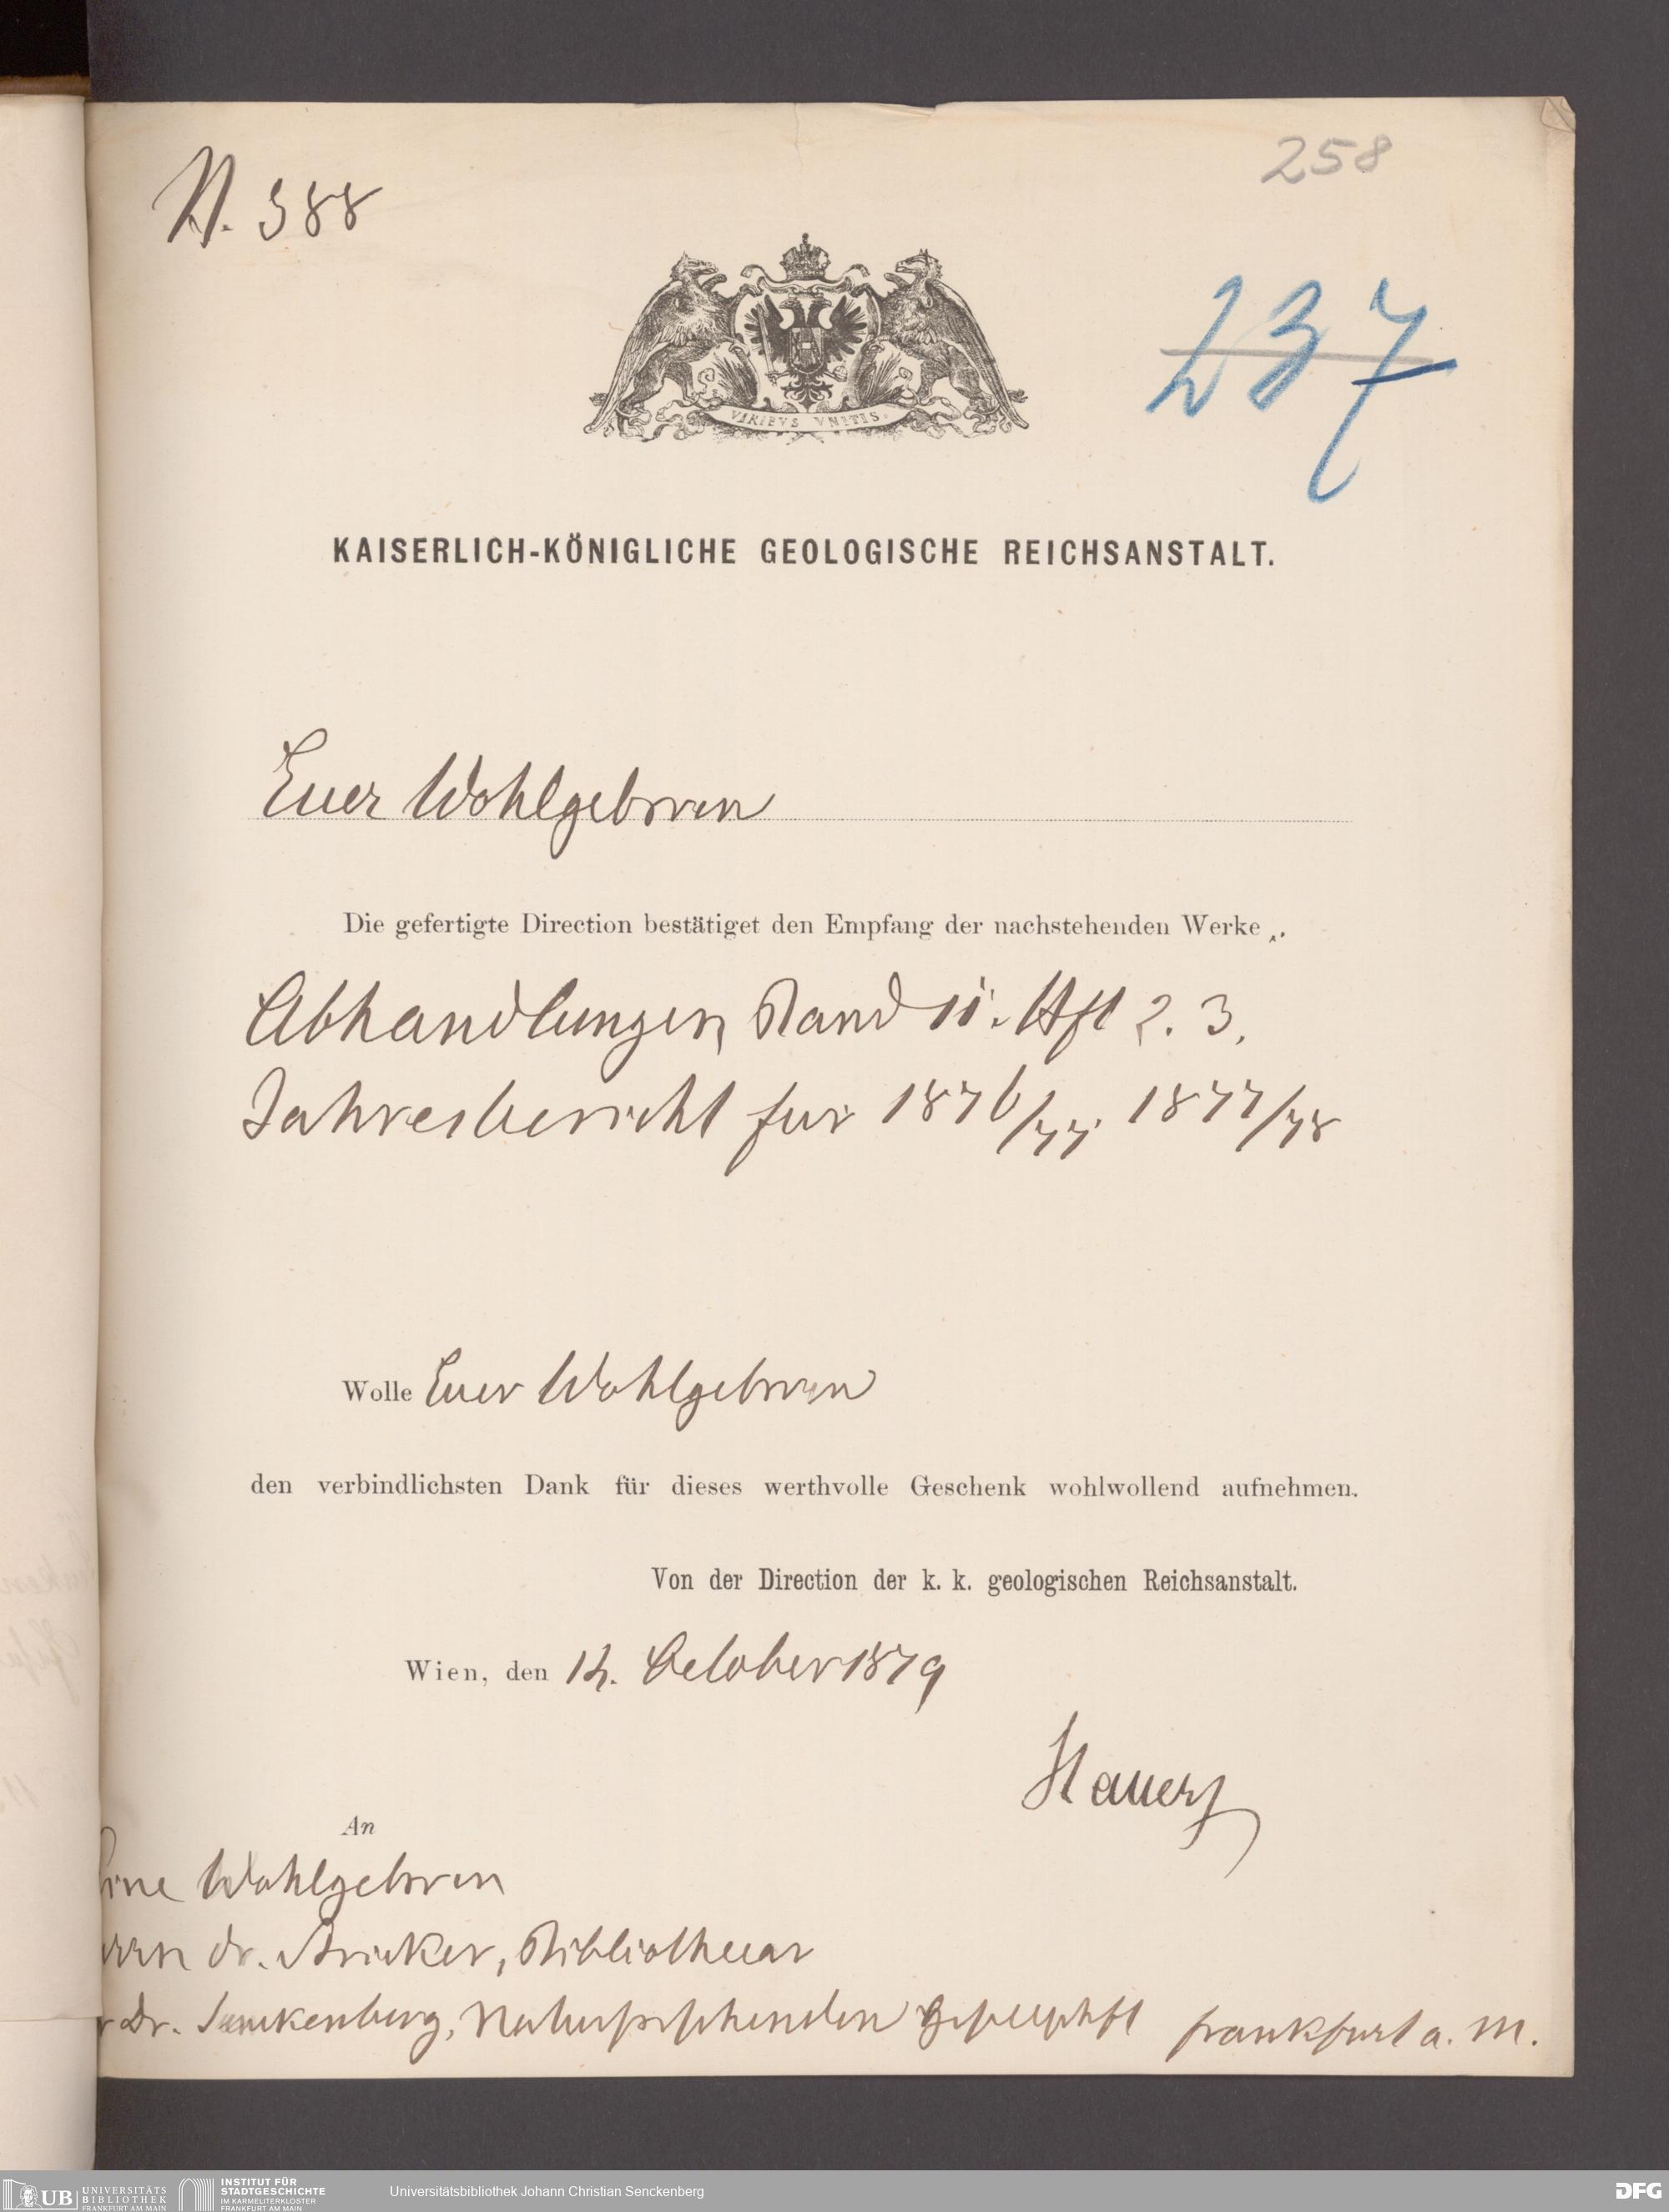 258
N. 388
237
VARIBVS VNITIS.
KAISERLICH-KÖNIGLICHE GEOLOGISCHE REICHSANSTALT.
Euer Wohlgeboren
Die gefertigte Direction bestätiget den Empfang der nachstehenden Werke.
Abhandlungen Band 11. Hft 2. 3.
Jahresbericht für 1876/77. 1877/78
Wolle Euer Wohlgeboren
den verbindlichsten Dank für dieses werthvolle Geschenk wohlwollend aufnehmen.
Von der Direction der k. k. geologischen Reichsanstalt.
Wien, den 14. October 1879
Hauer
An
Wohlgeboren
Dr. Stricker, Bibliothecar
Dr. Senckenberg, Naturforschenden Gesellschft Frankfurt a. M.
UB UNIVERSITÄTS BIBLIOTHEK FRANKFURT AM MAIN
INSTITUT FÜR STADTGESCHICHTE IM KARMELITERKLOSTER FRANKFURT AM MAIN
Universitätsbibliothek Johann Christian Senckenberg
DFG